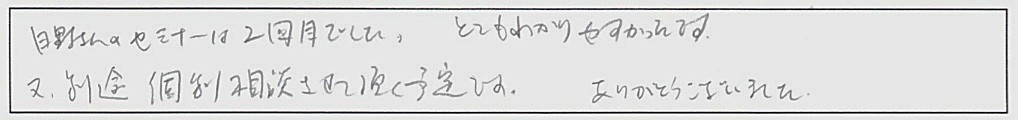 日野さんのセミナーは2回目でした。とてもわかりやすかったです。
又、別途個別相談させて頂く予定です。ありがとうございました。